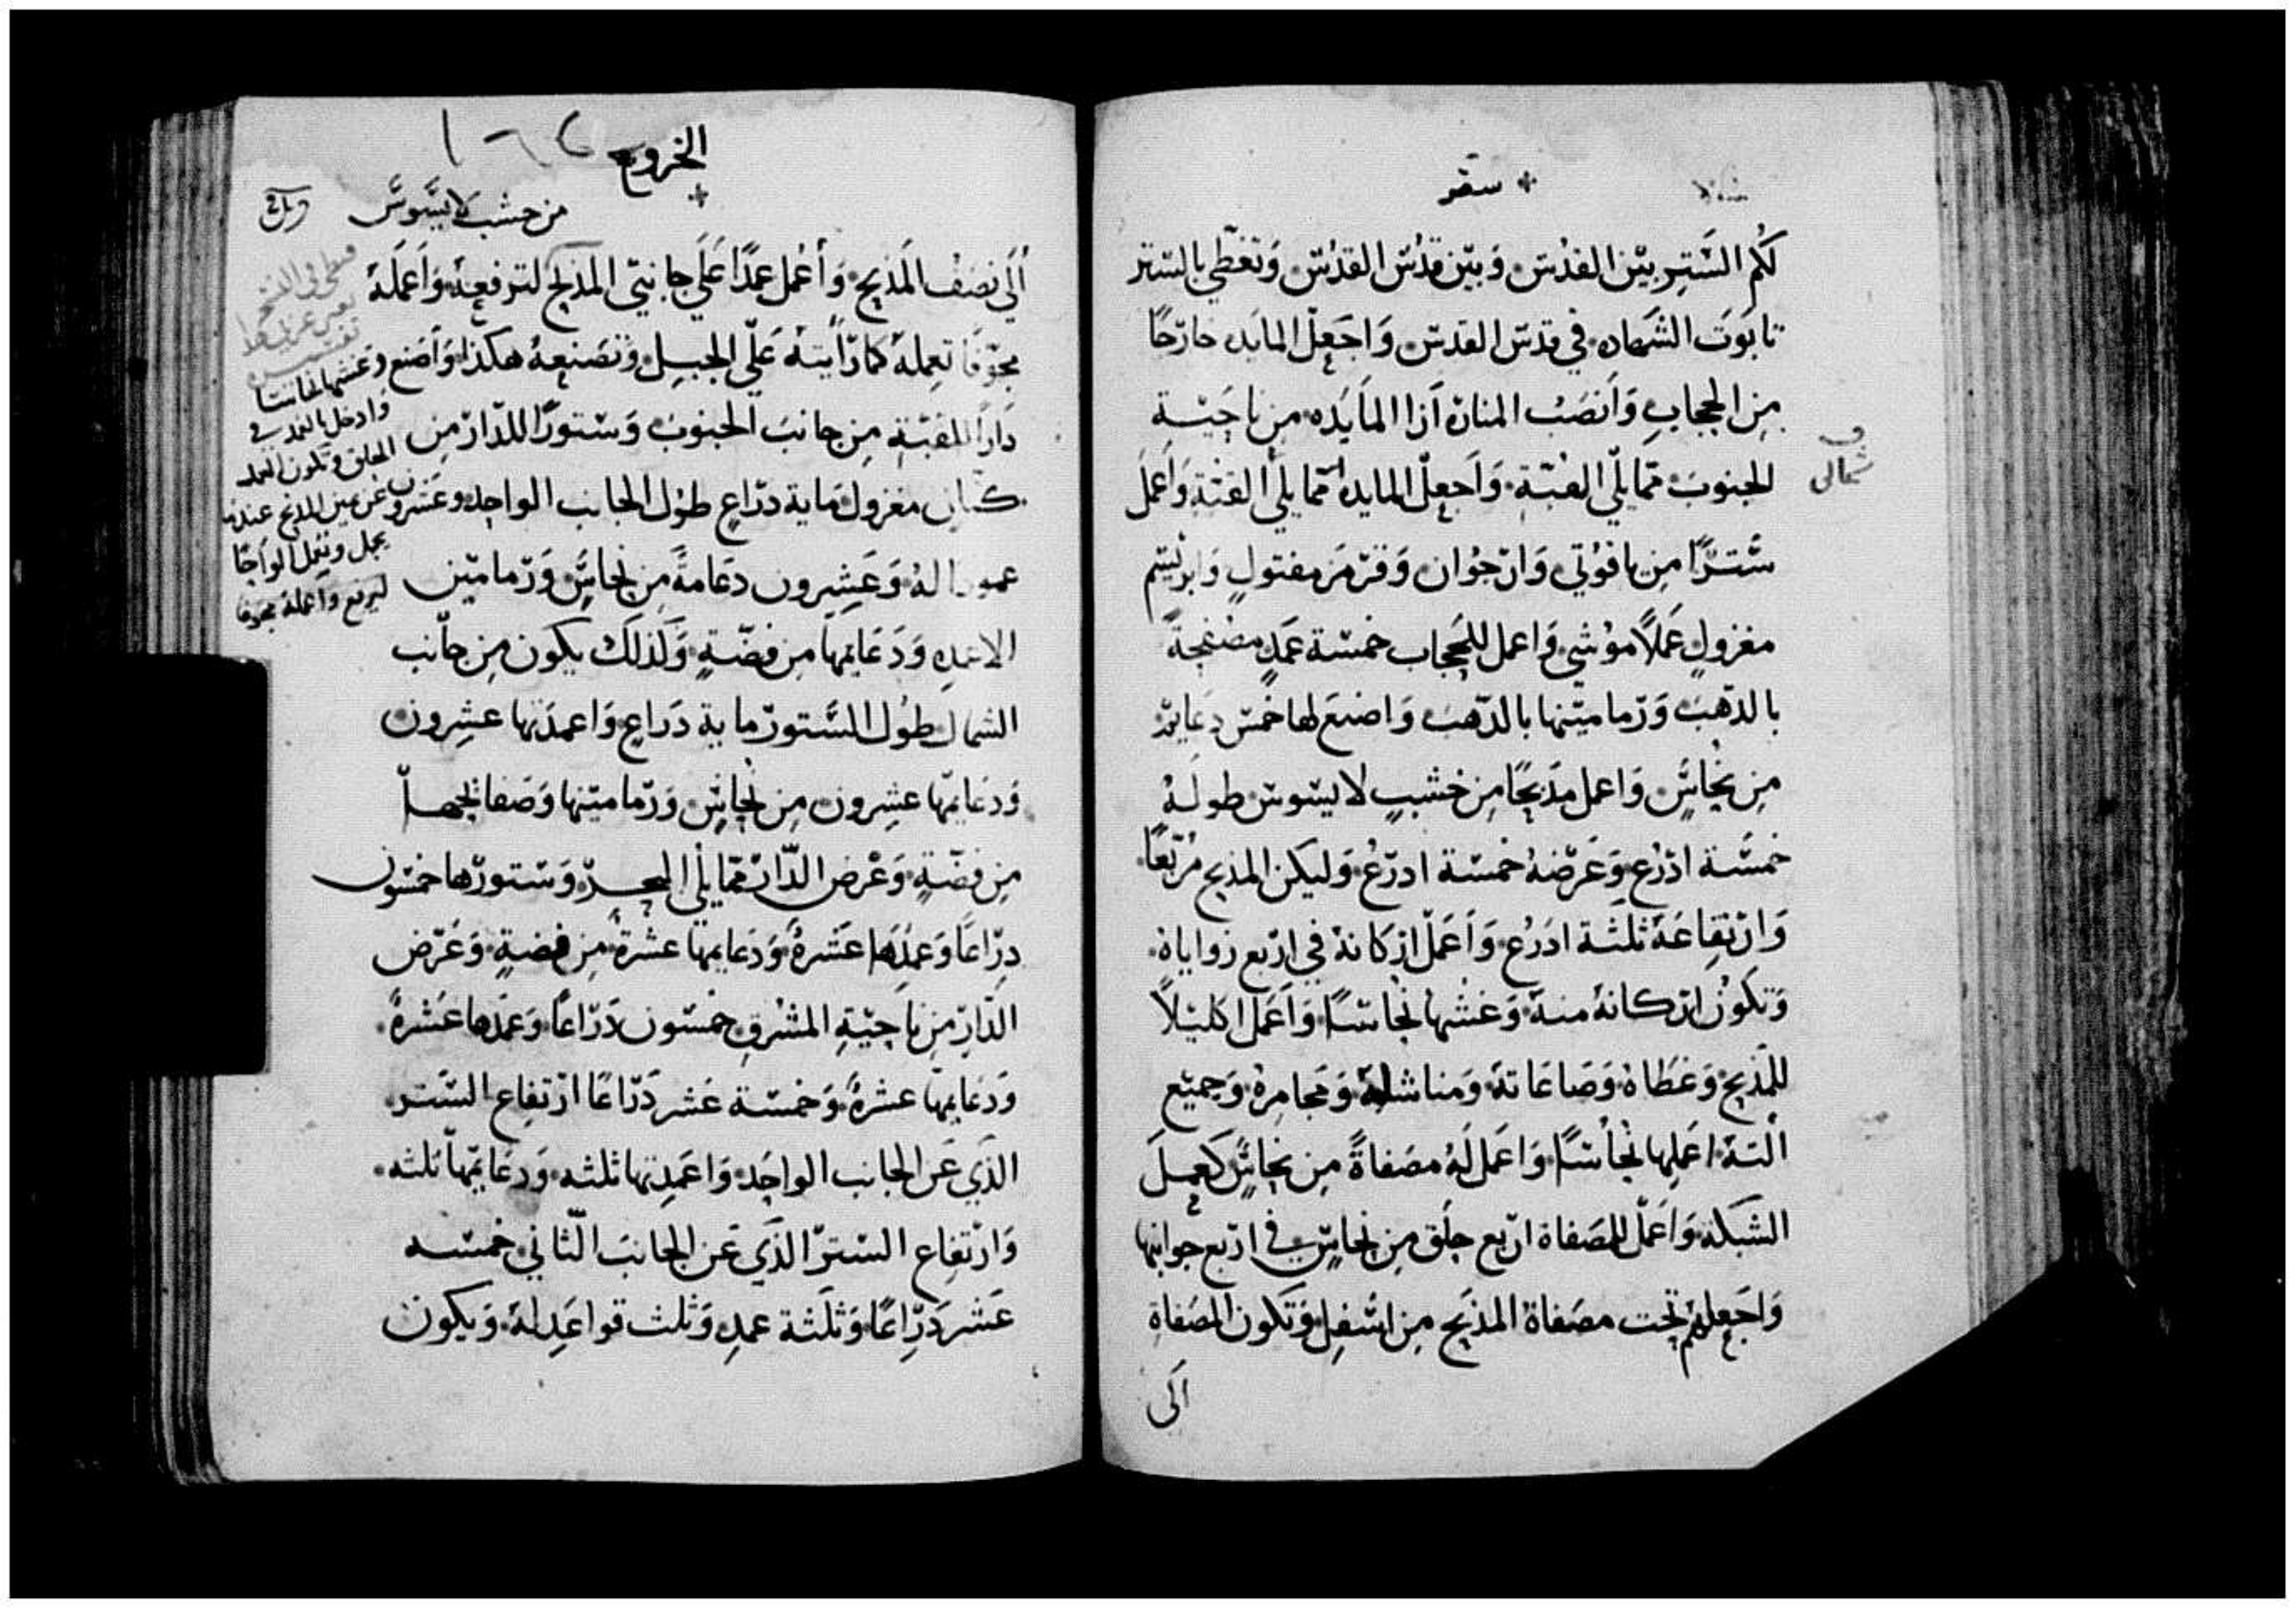 سفر
لكُم السَتِر بيْن القدُس وَبيْن قدُس القدُس وَتغطِي بالسَتر
تابوَت الشهاده في قدس القدس وَاجعِل المايَده خارجًا
مِن الحِجابِ وَانصَبْ المناره آزا المايَده مِن ناحِيَة
الجنوبَ ممّا يلي القبّة وَاجعِلْ المايده ممّا يلي القبّة وَاعمَل
ستَرًا مِن ياقوُتي وَارْجوُان وَقرْمَز مفتولٍ وَابرْيسَم
مغزولٍ عَملاً موُشي وَاعمل للحِجاب خمسَة عمَدٍ مصفحِةً
بالذهَبَ وَرْماميْنها بالذهَبَ وَاصنعَ لها خمسَ دعايم
مِن نحِاسٍ وَاعمل مذبَحًا مِن خشبٍ لا يسوس طولهُ
خمسَة ادْرُع وَعَرْضهُ خمسَة ادرْعُ وَليكن المذبح مرُبّعًا
وَارْتقِاعهَ ثلثَة ادَرُع وَاعَملْ ارْكانهُ في ارْبع زواياهُ
وَتكوُن ارْكانهُ منهُ وَغشّها نُحاسًا وَاَعمَل اكليْلاً
للمذَبحِ وَغطَاهُ وَصَاعَاتهَ وَمناشلهُ وَمجامِرهُ وَجميْع
التهَ اعَملِها نحاُسًا وَاعَمل لَهُ مصَفاةً مِن نِحاسٍ كعمِلَ
الشبكه وَاعَملْ للمصَفاة ارْبع حِلَق مِن نحِاسٍ في ارْبع جوانبها
وَاجَعِلهُم تحِت مصَفاةُ المذبَح مِن اسَفلِ وَتكَون المصَفاةِ
الَى
شمالى
الخروج
١٦٢
من خشب لا يسَوسَّ
اَلَى نصَفْ المَذبح وَاَعمل عمدًا عَلَى جانبَي المذبح لترفعِهُ وَاَعمَلهَ
مجَوّفاً تعمِلهَ كما رَاَيتهُ عَلَى الجبِل وَتصَنعِهُ هكذا وَاَصَنع
دَاراً للقبّة مِن جانبَ الجنوبَ وَستورًا للدّارْ مِن
كتَانٍ مغزولٍ مَاية درْاعٍ طوُل الجانب الواحِد وَعشرون
عموداً لهُ وَعَشِرون دعَامةً مِن نحِاسٍ وَرّمامَين
الاعمدِه وَدَعَايمَها مِن فضّةٍ وَكذلَك يكون مِن جانب
الشمال طوُل الستورْ ماية دَراعٍ وَاعمدَتها عشِرون
وَدعَايمَها عشِرون مِن نحِاسٍ وَرّماميْنها وَصَفايحِها
مِن فضّةٍ وَعْرض الدّارْ ممّا يلي البحر وَستورّها خمسَون
درِّاعًا وَعمدَها عَشرةُ وَدَعَايمها عشرةُ مِن فضةٍ وَعَرْض
الدّارِ مِن ناحيَةِ المشرقِ خمسَون دَرّاعًا وَعمَدها عشَرةَ
وَدعَايمها عشرةُ وَخمسَة عَشر دَرّاعًا ارْتفاع السَتر
الذَي عَن الجانب الواحِد وَاعمَدِتها ثلثه وَدعَايمها ثلثه
وَارْتفاع السَترْ الذَي عَن الجانبَ الثاني خمسَه
عَشَر دَرِّاعًا وَثلَثة عمدِ وَثلث قواعَدِ لهُ وَيكون
وغشها نحاسا
وَادخل العمد في
الحلق وتكون العمد
عن جنبى المذبح عندما
يحمل وتعمل الواحًا
ليرفع واعمله مجوفا